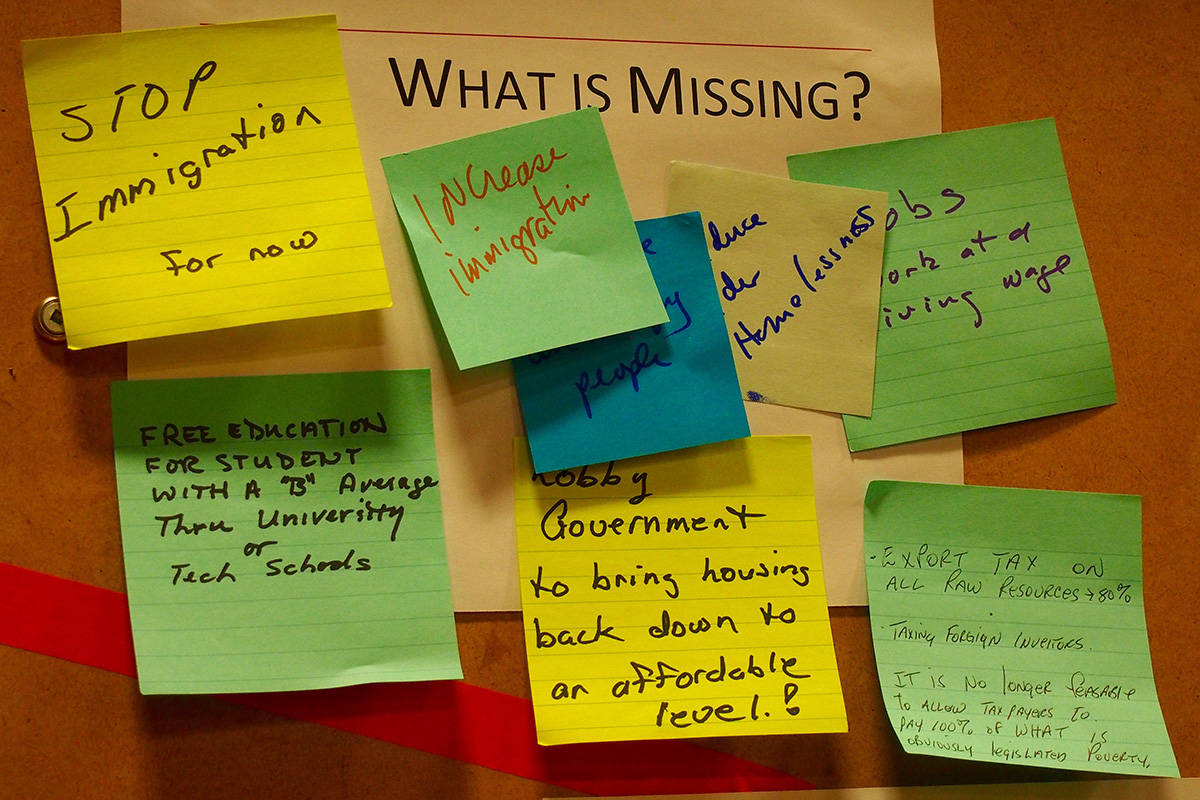 WHAT IS MISSING?
STOP
Immigration
for now
INCrease
immigratin
people
duce
der
Homelessness
obs
ork at a
iving wage
FREE EDUCATION
FOR STUDENT
WITH A "B" Average
Thru University
or
Tech Schools
Lobby
Government
to bring housing
back down to
an affordable
level.!
- EXPORT TAX ON
ALL RAW RESOURCES → 80%
- TAXING FORGIGN INVEITORS.
IT IS NO LONGER FEASABLE
TO ALLOW TAXPAYERS TO.
PAY 100% OF WHAT IS
OBVIOUSLY LEGISLATED POVERTY.